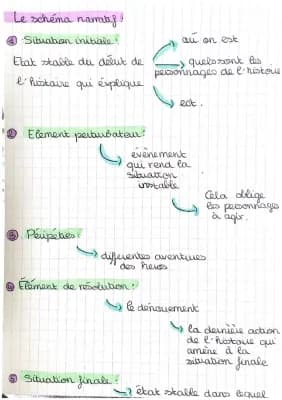 Le schéma narratif :
① Situation initiale :
Etat stable du début de
l'histoire qui explique
où on est
quels sont les
personnages de l'histoire
ect.
② Elément perturbateur :
évènement
qui rend la
situation
instable
Cela oblige
les personnages
à agir.
③ Péripéties :
différentes aventures
des héros
④ Élément de résolution :
le dénouement
la dernière action
de l'histoire qui
amène à la
situation finale
⑤ Situation finale :
état stable dans lequel